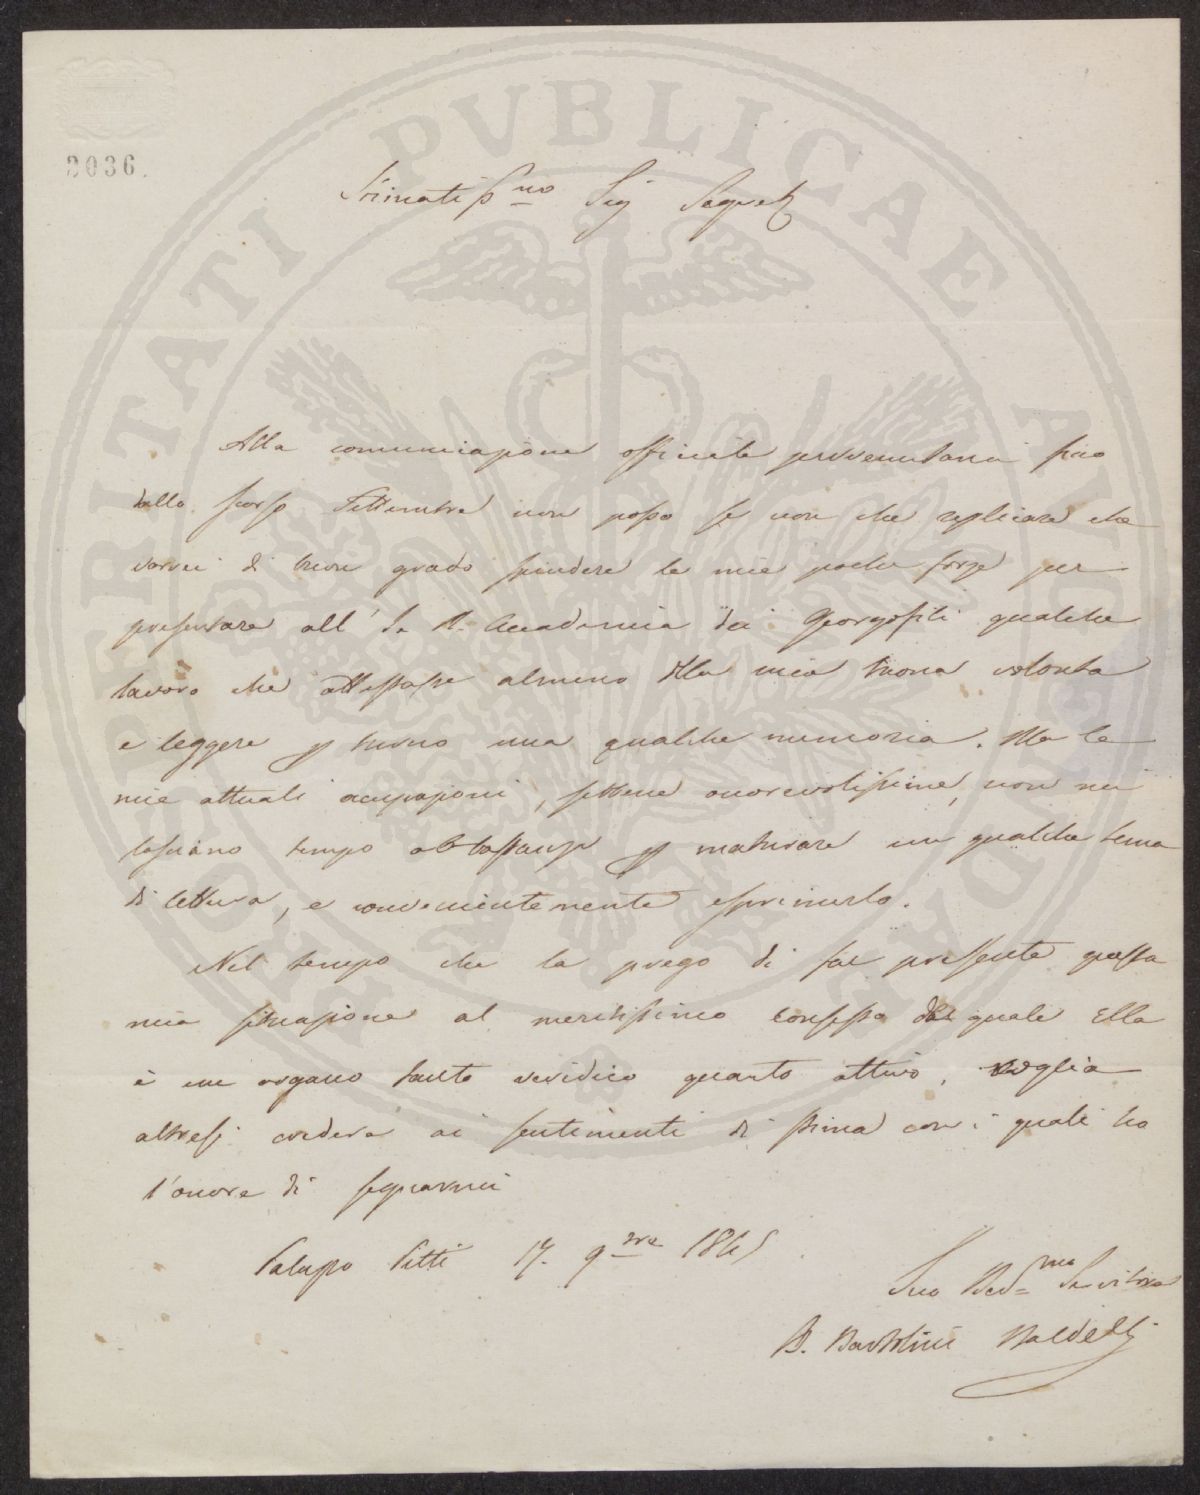 PROSPERITATI PVBLICAE AVGENDAE
2036.
Stimatiss.mo Sig Segret.
Alla comunicazione officiale pervenutami fino
dallo scorso Settembre non posso se non che replicare che
vorrei di buon grado spendere le mie poche forze per
presentare all' I. R. Accademia dei Georgofili qualche
lavoro che attestasse almeno della mia buona volontà
e leggere p turno una qualche memoria. Ma le
mie attuali occupazioni, sebbene onorevolissime, non mi
lasciano tempo abbastanza p maturare un qualche tema
di lettura, e convenientemente esprimerlo.
Nel tempo che la prego di far presente questa
mia situazione al meritissimo consesso del quale Ella
è un organo tanto veridico quanto attivo, voglia
altresì credere ai sentimenti di stima con i quali ho
l'onore di segnarmi
Palazzo Pitti 17. 9bre 1845
Suo Dev=mo Servitore
B. Bartolini Baldelli